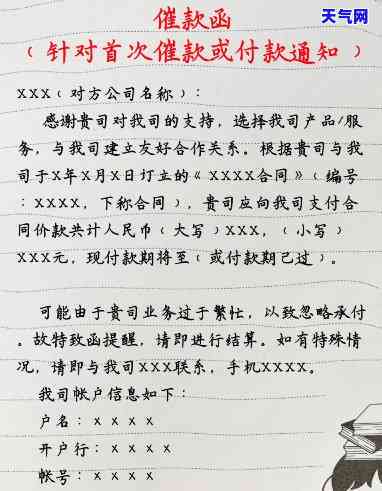 天气网
催款函
（针对首次催款或付款通知）
XXX（对方公司名称）：
感谢贵司对我司的支持，选择我司产品/服
务，与我司建立友好合作关系。根据贵司与我
司于X年X月X日订立的《XXXX合同》（编号
：XXXX，下称合同），贵司应向我司支付合
同价款共计人民币（大写）XXX，（小写）
XXX元，现付款期将至（或付款期已过）。
可能由于贵司业务过于繁忙，以致忽略承付
。故特致函提醒，请即进行结算。如有特殊情
况，请即与我司XXX联系，手机XXXX。
我司帐户信息如下：
户名：X X X X
开户行：X X X X
帐号：X X X X